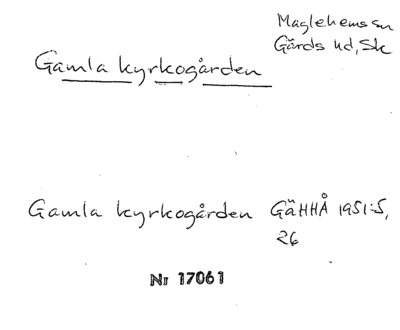 Maglehems sn
Gärds hd, Sk
Gamla kyrkogården
Gamla kyrkogården GäHHÅ 1951:5,
26
Nr 17061